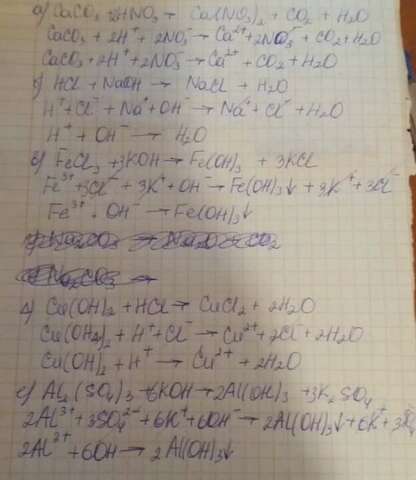 а) CaCO₃ + 2HNO₃ → Ca(NO₃)₂ + CO₂ + H₂O
CaCO₃ + 2H⁺ + 2NO₃⁻ → Ca²⁺ + 2NO₃⁻ + CO₂ + H₂O
CaCO₃ + 2H⁺ + 2NO₃⁻ → Ca²⁺ + CO₂ + H₂O
б) HCl + NaOH → NaCl + H₂O
H⁺ + Cl⁻ + Na⁺ + OH⁻ → Na⁺ + Cl⁻ + H₂O
H⁺ + OH⁻ → H₂O
в) FeCl₃ + 3KOH → Fe(OH)₃ + 3KCl
Fe³⁺ + 3Cl⁻ + 3K⁺ + OH⁻ → Fe(OH)₃↓ + 3K⁺ + 3Cl⁻
Fe³⁺ + OH⁻ → Fe(OH)₃↓
г) Na₂CO₃ → Na₂O + CO₂
Na₂CO₃ →
д) Cu(OH)₂ + HCl → CuCl₂ + 2H₂O
Cu(OH)₂ + H⁺ + Cl⁻ → Cu²⁺ + 2Cl⁻ + 2H₂O
Cu(OH)₂ + H⁺ → Cu²⁺ + 2H₂O
е) Al₂(SO₄)₃ + 6KOH → 2Al(OH)₃ + 3K₂SO₄
2Al³⁺ + 3SO₄²⁻ + 6K⁺ + 6OH⁻ → 2Al(OH)₃↓ + 6K⁺ +
2Al³⁺ + 6OH → 2Al(OH)₃↓